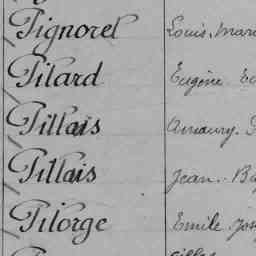 Pignorel Louis, Mari
Pilard Eugène
Pillais Amaury.
Pillais Jean. Ba
Pilorge Emile Jos